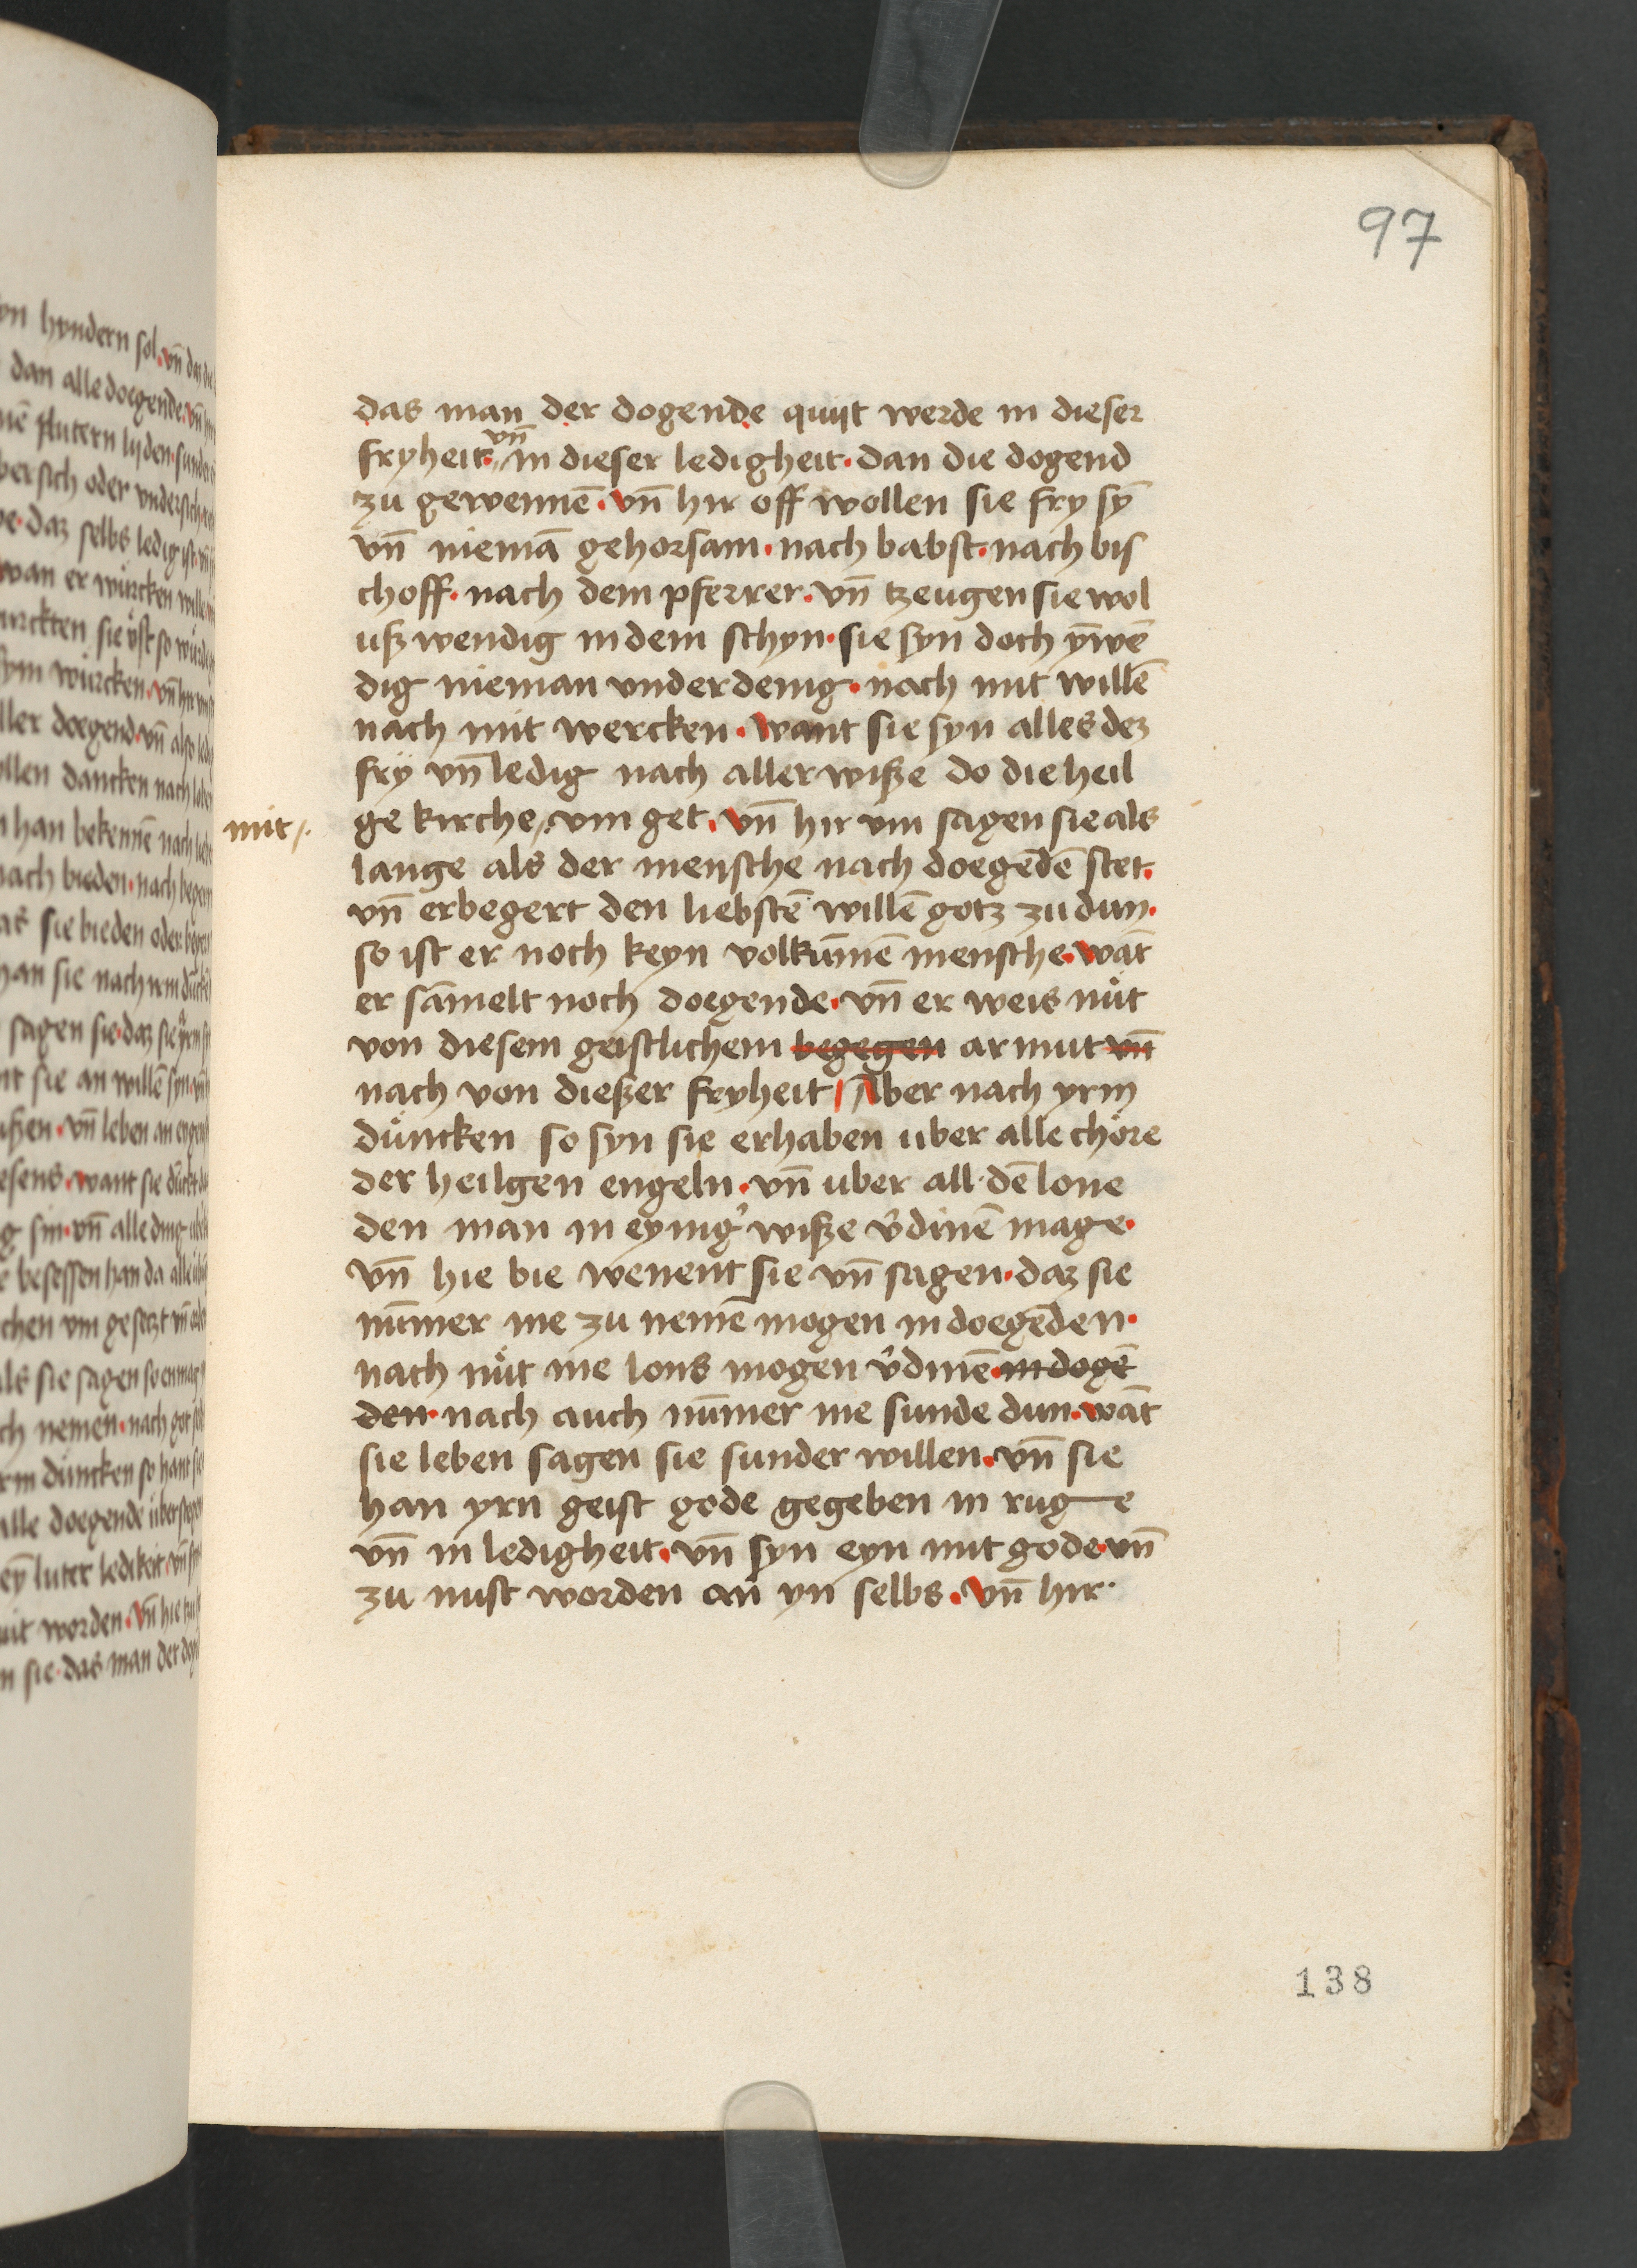 97
das man der dogende quijt werde in dieser
fryheit· vn̄ in dieser ledigheit· dan die dogend
zu gewennē· vn̄ hir off wollen sie fry sȳ
vn̄ niemā gehorsam· nach babst· nach bis
choff· nach dem pferrer· vn̄ tzeugen sie wol
uß wendig in dem schyn· sie syn doch ȳwē
dig nieman underdenig· noch mit willē
nach mit wercken· want sie syn alles dez
fry vn̄ ledig nach aller wiße do die heil
mit
ge kirche vm get· vn̄ hir vm sagen sie als
lange als der mensche nach doegēdē stet·
vn̄ erbegert den liebstē willē gotz zu dun·
so ist er noch keyn volkūmē mensche· wāt
er sāmelt noch doegende· vn̄ er weis nůt
von diesem geistlichem begegen armut vn̄
nach von dießer fryheit Aber nach yrm
důncken so syn sie erhaben uber alle chöre
der heilgen engeln· vn̄ uber all dē lone
den man in eynig' wiße v'dinē mage·
vn̄ hie bie wenent sie vn̄ sagen· daz sie
nūmer me zu nemē mogen in doegēden·
nach nůt me lons mogen v'dinē· in dogē
den· nach auch nūmer me sunde dun· wāt
sie leben sagen sie sunder willen· vn̄ sie
han yrn geist gode gegeben in ruge
vn̄ in ledigheit· vn̄ syn eyn mit gode· vn̄
zu nust worden an yn selbs· vn̄ hir·
138